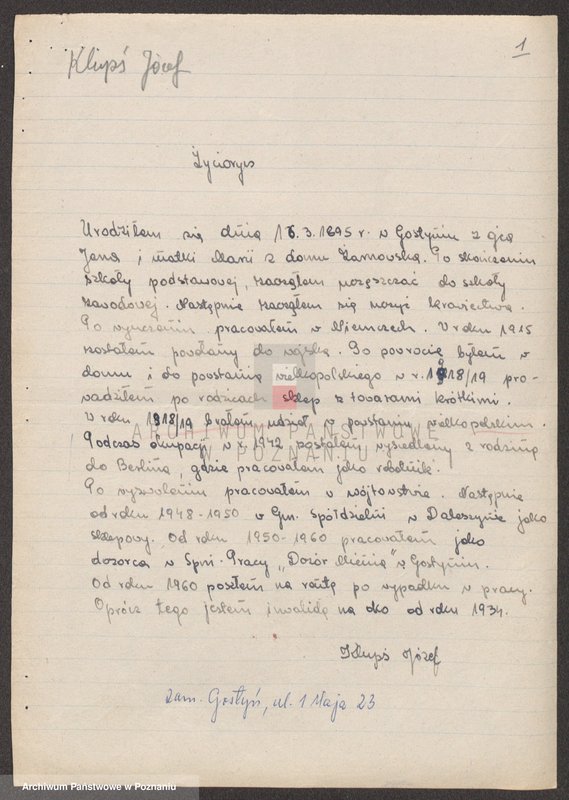 1
Klupś Józef
Życiorys
Urodziłem się dnia 16.3.1895 r. w Gostyniu z ojca
Jana i matki Marii z domu Żarnowska. Po skończeniu
szkoły podstawowej, zacząłem uczęszczać do szkoły
zawodowej. Następnie zacząłem się uczyć krawiectwa.
Po wyuczeniu pracowałem w Niemczech. W roku 1915
zostałem powołany do wojska. Po powrocie byłem w
domu i do powstania wielkopolskiego w r. 1918/19 pro-
wadziłem po rodzicach sklep z towarami krótkimi.
W roku 1918/19 brałem udział w powstaniu wielkopolskim.
Podczas okupacji w r. 1942 zostałem wysiedlony z rodziną
do Berlina, gdzie pracowałem jako robotnik.
Po wyzwoleniu pracowałem w wójtowstwie. Następnie
od roku 1948-1950 w Gm. Spółdzielni w Daleszynie jako
sklepowy. Od roku 1950-1960 pracowałem jako
dozorca w Spół. Pracy „Dozór Mienia" w Gostyniu.
Od roku 1960 poszłem na rentę po wypadku w pracy.
Oprócz tego jestem inwalidą na oko od roku 1934.
Klupś Józef
zam. Gostyń, ul. 1 Maja 23
ARCHIWUM PAŃSTWOWE
W POZNANIU
Archiwum Państwowe w Poznaniu